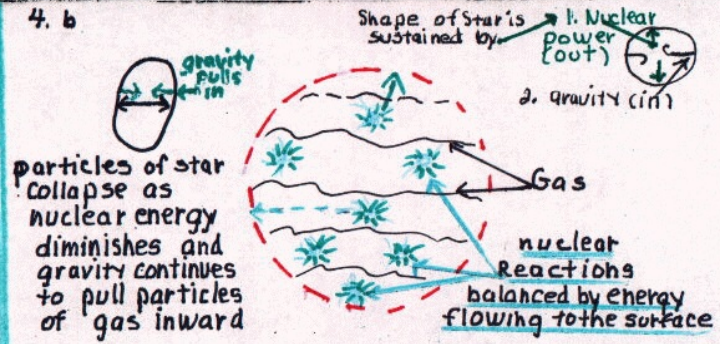 4. b
Shape of Star is
sustained by
1. Nuclear
power
(out)
2. gravity (in)
gravity
pulls
in
particles of star
collapse as
nuclear energy
diminishes and
gravity continues
to pull particles
of gas inward
Gas
nuclear
Reactions
balanced by energy
flowing to the surface